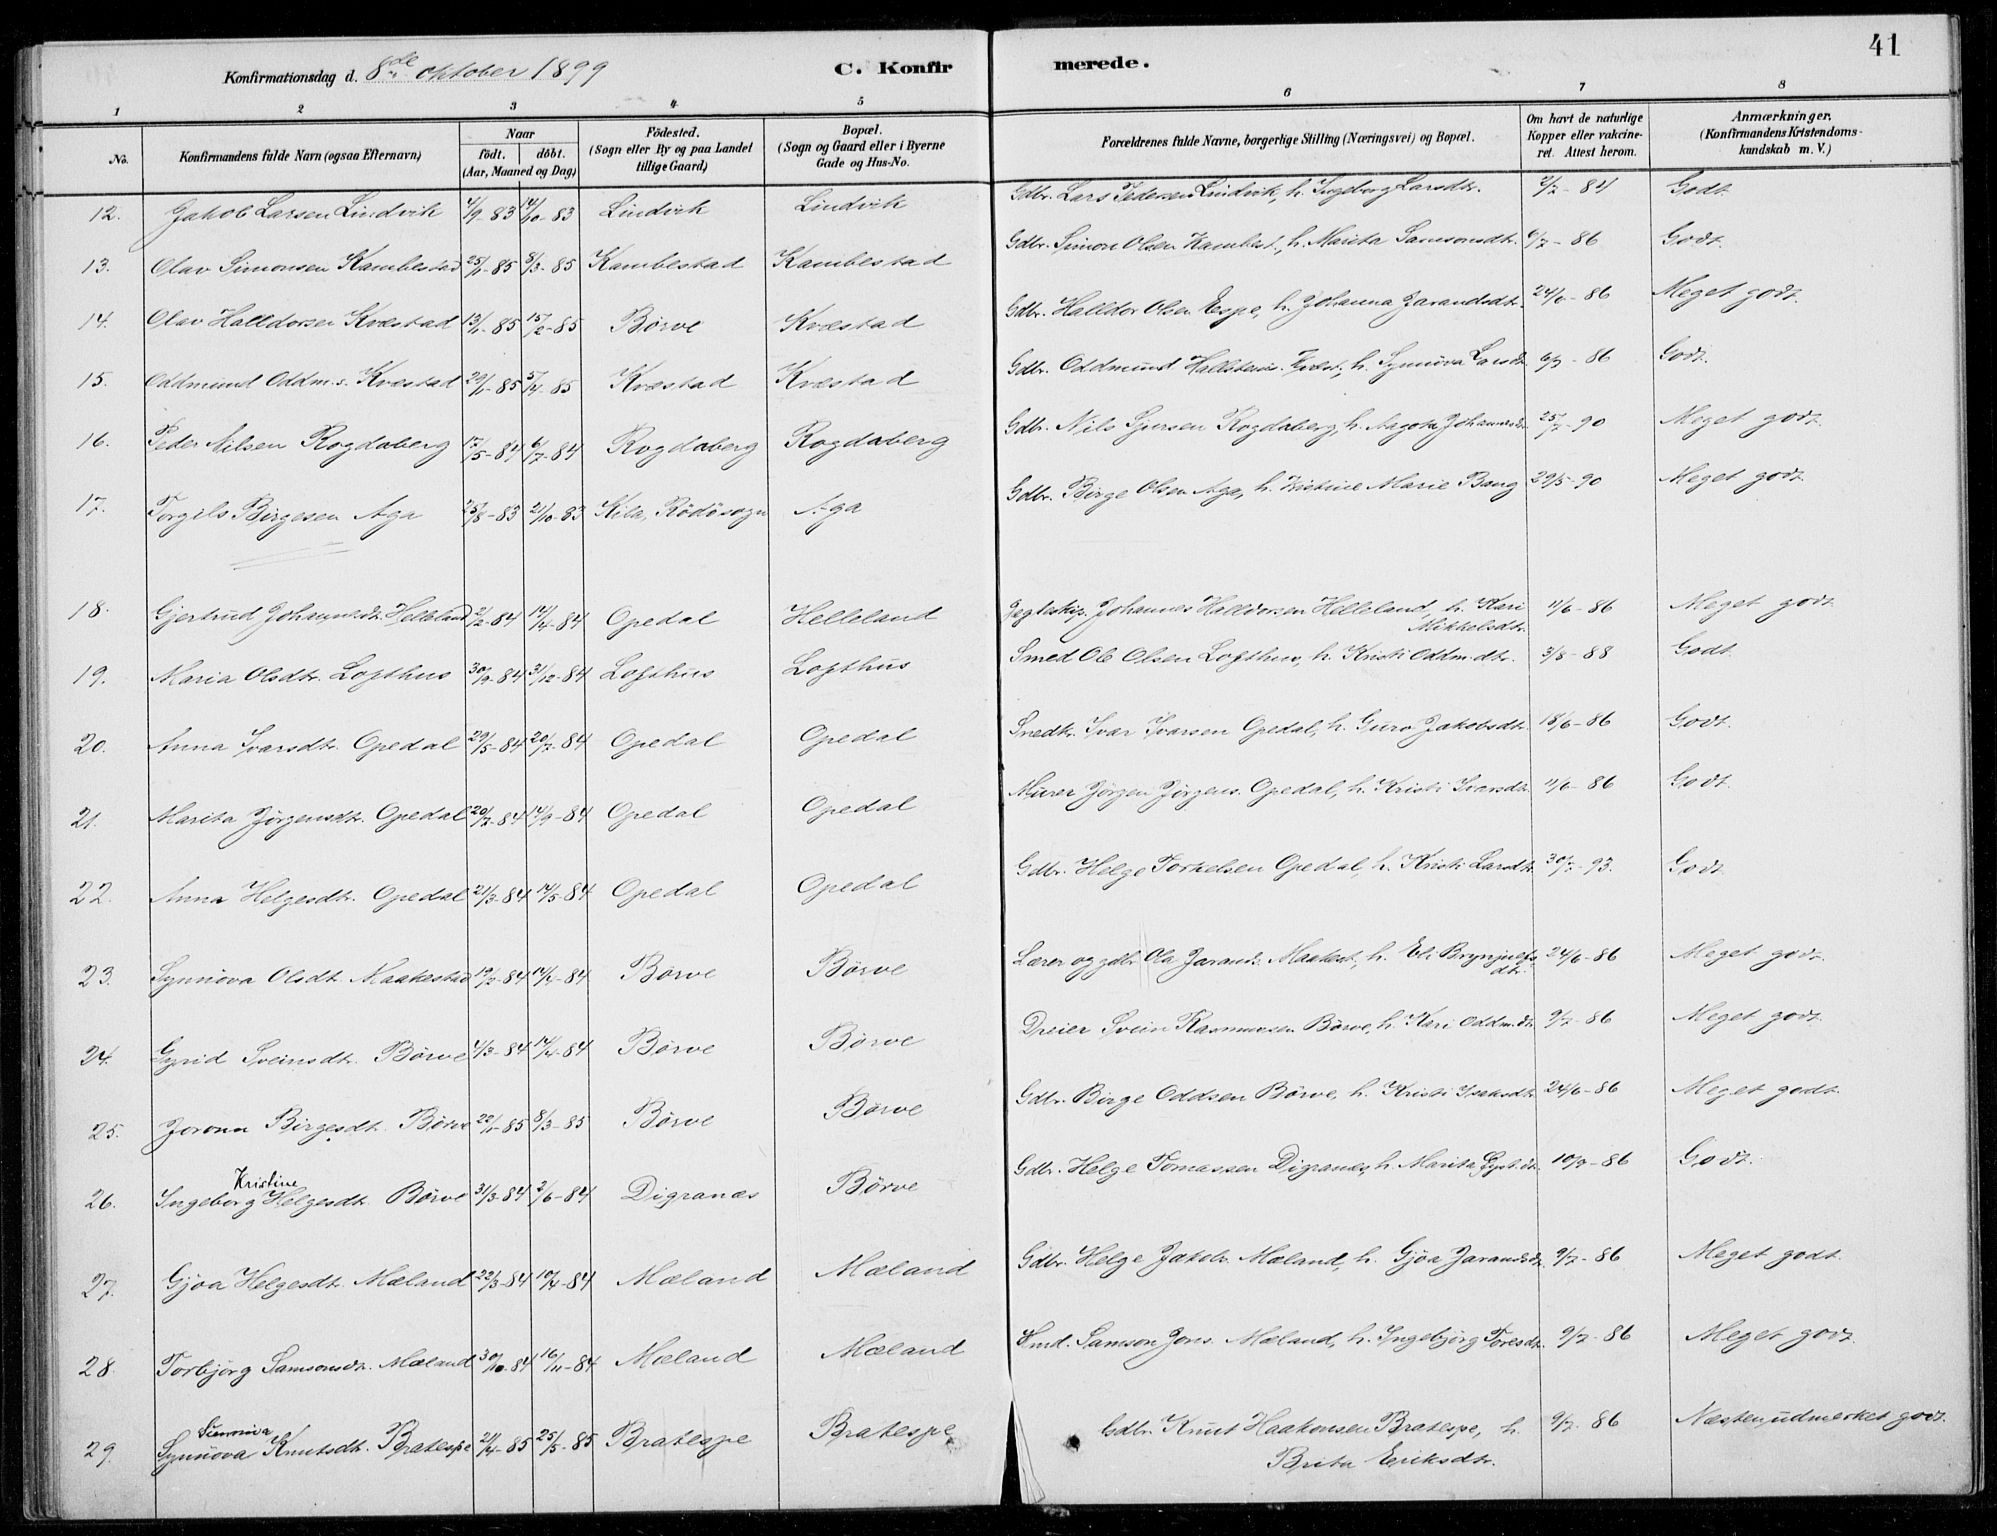 41
Konfirmationsdag d. 8de oktober 1899 C. Konfirmerede.
1 2 3 4 5 6 7 8
No. Konfirmandens fulde Navn (ogsaa Efternavn) Naar födt. döbt. (Aar, Maaned og Dag) Födested. (Sogn eller By og paa Landet tillige Gaard) Bopæl. (Sogn og Gaard eller i Byerne Gade og Hus-No. Forældrenes fulde Navne, borgerlige Stilling (Næringsvei) og Bopæl. Om havt de naturlige Kopper eller vakcineret. Attest herom. Anmærkninger. (Konfirmandens Kristendomskundskab m. V.)
12. Jakob Larsen Lindvik 4/9-83 14/10-83 Lindvik Lindvik Gdbr. Lars Pedersen Lindvik, h. Ingeborg Larsdtr. 2/7-84 Godt
13. Olav Simonsen Kambestad 25/1-85 8/3-85 Kambestad Kambestad Gdbr. Simon Olsen Kambest., h. Marita Samsonsdt. 6/7-86 Godt.
14. Olav Halldorsen Kvæstad 13/1-85 15/2-85 Börve Kvæstad Gdbr. Halldor Olsen Espe, h. Johanna Jarandsdt. 24/6-86 Meget godt.
15. Oddmund Oddm.s. Kvæstad 29/1-85 5/4-85 Kvæstad Kvæstad Gdbr. Oddmund Hallsteins. Kvæst., h. Synnöva Larsdt. 6/7-86 Godt.
16. Peder Nilsen Rogdaberg 17/5-84 6/7-84 Rogdaberg Rogdaberg Gdbr. Nils Sjursen Rogdaberg, h. Aagota Johannesdt. 25/7-90 Meget godt.
17. Torgils Birgesen Aga 25/8-83 21/10-83 Kila, Rödö sogn Aga Gdbr. Birge Olsen Aga, h. Kristine Marie Bang 29/5-90 Meget godt.
18. Gjertrud Johannesdt. Helleland 2/2-84 14/4-84 Opedal Helleland Jagteskip. Johannes Halldorsen Helleland, h. Kari Mikkelsdtr. 11/6-86 Meget godt
19. Maria Olsdtr. Lofthus 30/9-84 31/12-84 Lofthus Lofthus Smed Ole Olsen Lofthus, h. Kristi Oddm.dtr. 3/8-88 Godt
20. Anna Ivarsdtr. Opedal 29/5-84 20/7-84 Opedal Opedal Snedkr. Ivar Ivarsen Opedal, h. Guro Jakobsdtr. 18/6-86 Godt.
21. Marita Jörgensdt. Opedal 20/7-84 14/9-84 Opedal Opedal Murer Jörgen Jörgens. Opedal, h. Kristi Ivarsdt. 11/6-86 Godt.
22. Anna Helgesdt. Opedal 21/3-84 14/5-84 Opedal Opedal Gdbr. Helge Torkelsen Opedal, h. Kristi Larsdtr. 30/7-93. Godt
23. Synnöva Olsdt. Maakestad 19/2-84 14/4-84 Börve Börve Lærer og gdbr. Ola Jarands. Maakest., h. Eli Brynjulfsdtr. 24/6-86 Meget godt.
24. Gyrid Sveinsdtr. Börve 4/3-84 14/4-84 Börve Börve Dreier Svein Rasmussen Börve, h. Kari Oddm.dt. 9/7-86 Meget godt.
25. Joronn Birgesdt. Börve 22/1-85 8/3-85 Börve Börve Gdbr. Birge Oddsen Börve, h. Kristi Isaksdtr. 24/6-86 Meget godt.
26. Ingeborg Kristine Helgesdt. Börve 31/3-84 2/6-84 Digranæs Börve Gdbr. Helge Tomassen Digranæs, h. Marita Gyst.dt. 10/7-86 Godt.
27. Gjöa Helgesdt. Mæland 22/3-84 10/4-84 Mæland Mæland Gdbr. Helge Jakobs. Mæland, h. Gjöa Jarandsdt. 9/7-86 Meget godt.
28. Torbjörg Samsonsdt. Mæland 30/10-84 16/11-84 Mæland Mæland Hmd. Samson Jons. Mæland, h. Ingebjörg Toresdt. 9/7-86 Meget godt.
29. Synnöva Knutsdt. Bratespe 21/4-85 25/5-85 Bratespe Bratespe Gdbr. Knut Haakonsen Bratespe, h. Brita Eriksdtr. 9/7-86 Næsten udmerket godt.